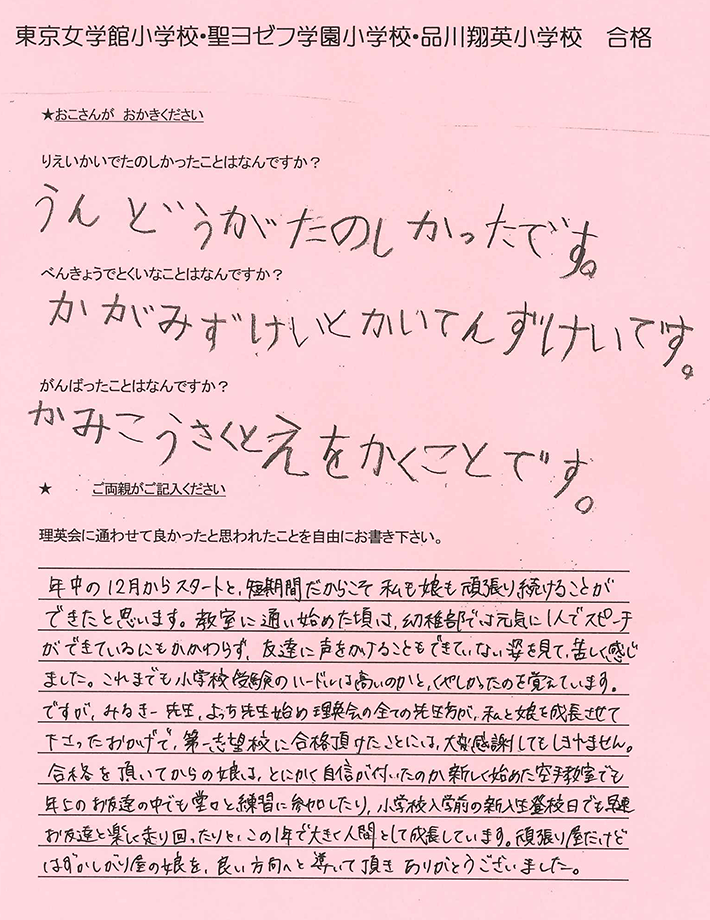 東京女学館小学校・聖ヨゼフ学園小学校・品川翔英小学校　合格
★おこさんが　おかきください
りえいかいでたのしかったことはなんですか？
うんどうがたのしかったです。
べんきょうでとくいなことはなんですか？
かがみずけいとかいてんずけいです。
がんばったことはなんですか？
かみこうさくとえをかくことです。
★　ご両親がご記入ください
理英会に通わせて良かったと思われたことを自由にお書き下さい。
年中の12月からスタートと、短期間だからこそ私も娘も頑張り続けることが
できたと思います。教室に通い始めた頃は、幼稚部では元気に1人でスピーチ
ができているにもかかわらず、友達に声をかけることもできていない姿を見て、苦しく感じ
ました。これまでも小学校受験のハードルは高いのかと、くやしかったのを覚えています。
ですが、みるきー先生、よっち先生始め理英会の全ての先生方が、私と娘を成長させて
下さったおかげで、第一志望校に合格頂けたことには、大変感謝してもしきれません。
合格を頂いてからの娘は、とにかく自信が付いたのか新しく始めた空手教室でも
年上のお友達の中でも堂々と練習に参加したり、小学校入学前の新入生登校日でも早速
お友達と楽しく走り回ったりと、この1年で大きく人間として成長しています。頑張り屋だけど
はずかしがり屋の娘を、良い方向へと導いて頂きありがとうございました。